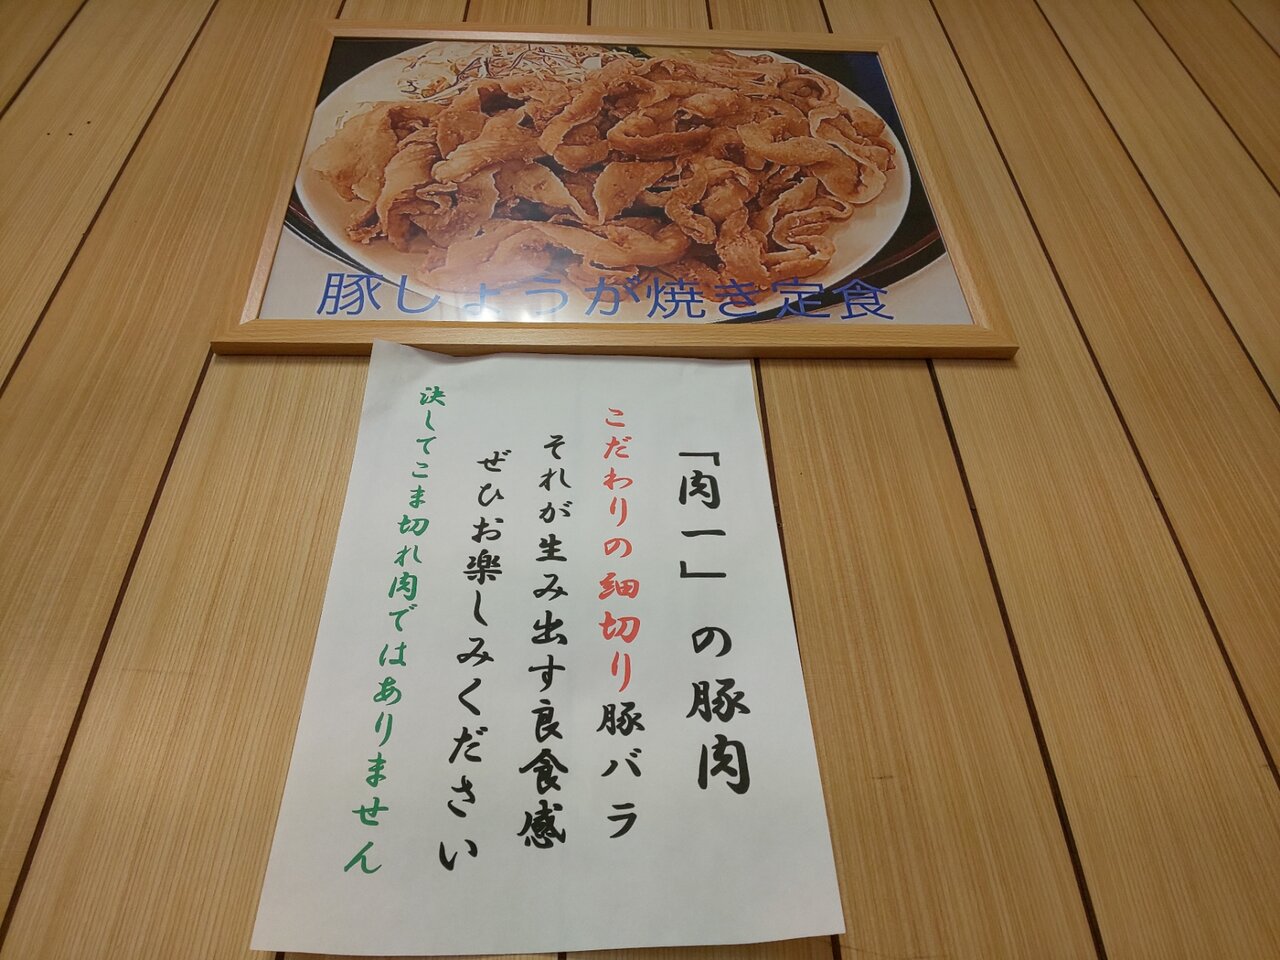 豚しょうが焼き定食
「肉一」の豚肉
こだわりの細切り豚バラ
それが生み出す良食感
ぜひお楽しみください
決してこま切れ肉ではありません